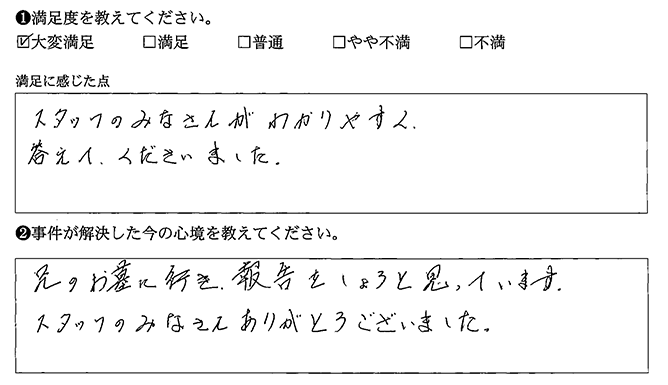 ❶満足度を教えてください。
☑大変満足 □満足 □普通 □やや不満 □不満
満足に感じた点
スタッフのみなさんがわかりやすく、
答えて、くださいました。
❷事件が解決した今の心境を教えてください。
兄のお墓に行き、報告をしようと思っています。
スタッフのみなさんありがとうございました。